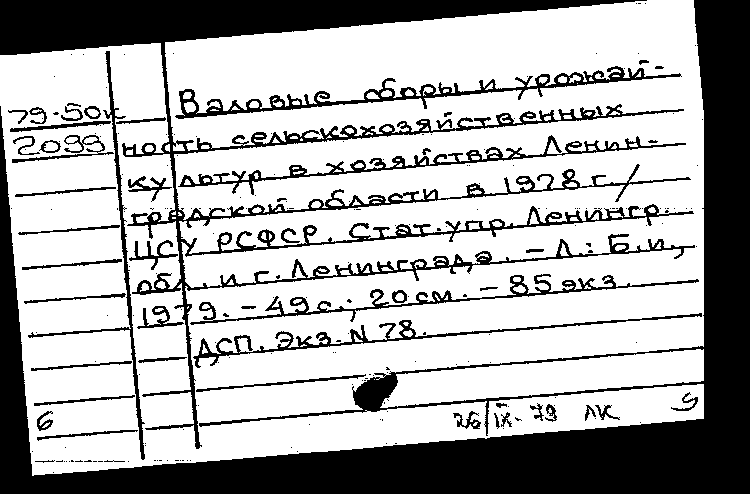 79-50к Валовые сборы и урожай-
2099 ность сельскохозяйственных
культур в хозяйствах Ленин-
градской области в 1978 г. /
ЦСУ РСФСР. Стат. упр. Ленингр.
обл. и г. Ленинграда. - Л.: Б.и.,
1979. - 49 с.; 20 см. - 85 экз.
ДСП. Экз. N 78.
6 26/IX-79 ЛК